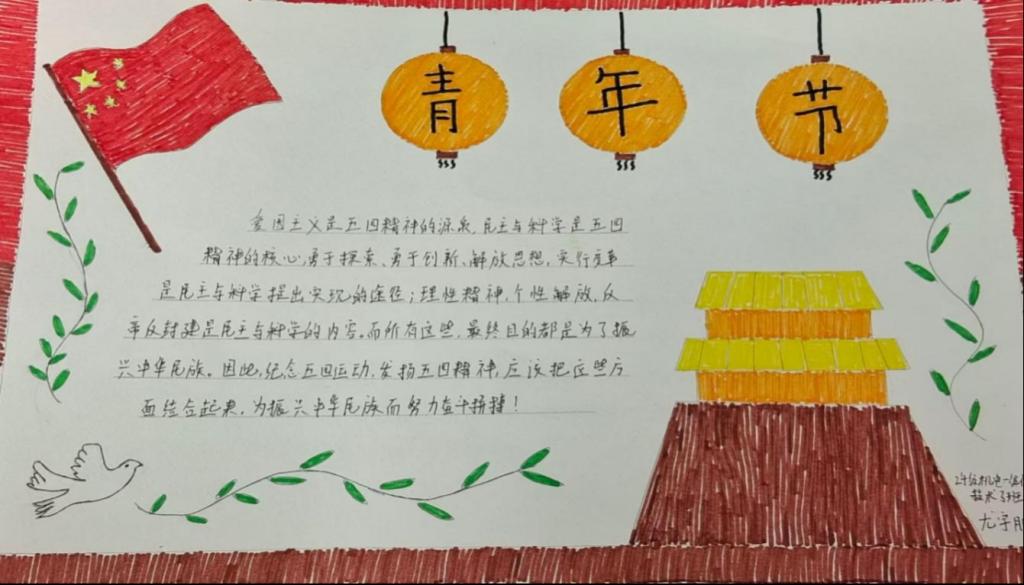 青年节
爱国主义是五四精神的源泉,民主与科学是五四
精神的核心,勇于探索、勇于创新、解放思想、实行变革
是民主与科学提出实现的途径;理性精神,个性解放,反
帝反封建是民主与科学的内容。而所有这些,最终目的都是为了振
兴中华民族。因此,纪念五四运动,发扬五四精神,应该把这些方
面结合起来,为振兴中华民族而努力奋斗拼搏!
24级机电一体化
技术3班
尤宇